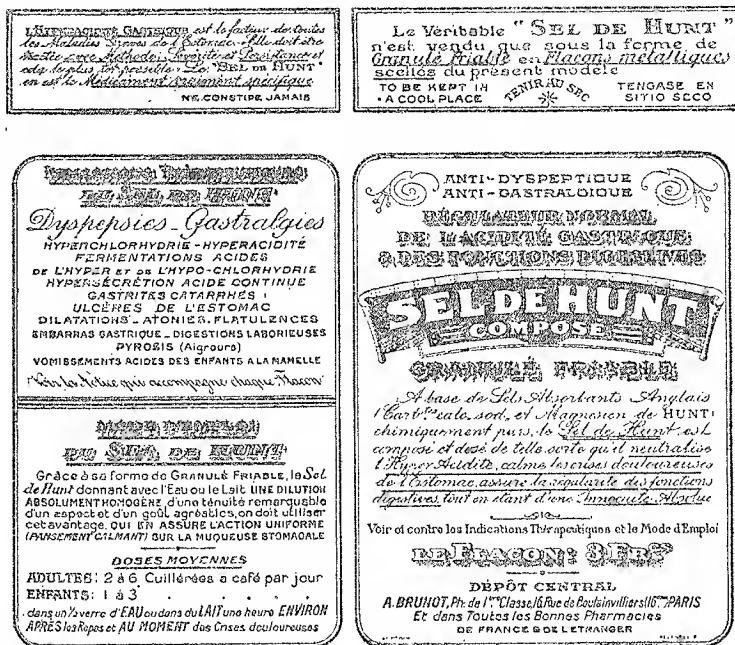 L'HYPERACIDITÉ GASTRIQUE est le facteur de toutes
les Maladies Graves de l'Estomac. Elle doit être
traitée avec Méthode, Sévérité et Persistance et
cela le plus tôt possible. Le "SEL DE HUNT"
en est le Médicament vraiment spécifique
NE CONSTIPE JAMAIS
Le Véritable "SEL DE HUNT"
n'est vendu que sous la forme de
Granulé Friable en Flacons métalliques
scellés du présent modèle
TO BE KEPT IN A COOL PLACE
TENIR AU SEC
TENGASE EN SITIO SECO
DU SEL DE HUNT
Dyspepsies - Gastralgies
HYPERCHLORHYDRIE - HYPERACIDITÉ
FERMENTATIONS ACIDES
DE L'HYPER ET DE L'HYPO-CHLORHYDRIE
HYPERSÉCRÉTION ACIDE CONTINUE
GASTRITES CATARRHES
ULCÈRES DE L'ESTOMAC
DILATATIONS - ATONIES. FLATULENCES
EMBARRAS GASTRIQUE - DIGESTIONS LABORIEUSES
PYROSIS (Aigreurs)
VOMISSEMENTS ACIDES DES ENFANTS A LA MAMELLE
Voir la Notice qui accompagne chaque Flacon
MODE D'EMPLOI
DU SEL DE HUNT
Grâce à sa forme de GRANULÉ FRIABLE, le Sel
de Hunt donnant avec l'Eau ou le Lait UNE DILUTION
ABSOLUMENT HOMOGÈNE, d'une ténuité remarquable
d'un aspect et d'un goût agréables, on doit utiliser
cet avantage, QUI EN ASSURE L'ACTION UNIFORME
(PANSEMENT CALMANT) SUR LA MUQUEUSE STOMACALE
DOSES MOYENNES
ADULTES: 2 à 6 Cuillérées a café par jour
ENFANTS: 1 à 3 . . . .
dans un ½ verre d'EAU ou dans du LAIT une heure ENVIRON
APRÈS les Repas et AU MOMENT des Crises douloureuses
ANTI-DYSPEPTIQUE
ANTI-GASTRALGIQUE
RÉGULATEUR NORMAL
DE L'ACIDITÉ GASTRIQUE
& DES FONCTIONS DIGESTIVES
SEL DE HUNT
COMPOSÉ
GRANULÉ FRIABLE
A base de Sels Absorbants Anglais
(Carb.tes calc. sod. et Magnésien de HUNT)
chimiquement purs, le Sel de Hunt est
composé et dosé de telle sorte qu'il neutralise
l'Hyper Acidité, calme les crises douloureuses
de l'Estomac, assure la régularité des fonctions
digestives, tout en étant d'une Innocuité Absolue
Voir ci contre les Indications Thérapeutiques et le Mode d'Emploi
LE FLACON: 3 Fr.
DÉPÔT CENTRAL
A. BRUNOT, Ph. de 1ère Classe, 16, Rue de Boulainvilliers (16me) PARIS
Et dans Toutes les Bonnes Pharmacies
DE FRANCE & DE L'ETRANGER